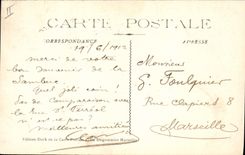 II
CARTE POSTALE
CORRESPONDANCE
ADRESSE
19/6/1912
Merci de votre
bon souvenir de la
Sambuc
Quel joli coin !
Pas de comparaison avec
la rue St Ferréol
n'est ce pas ?
meilleures amitiés
Monsieur
G. Foulquier
Rue Clapier 8
Marseille